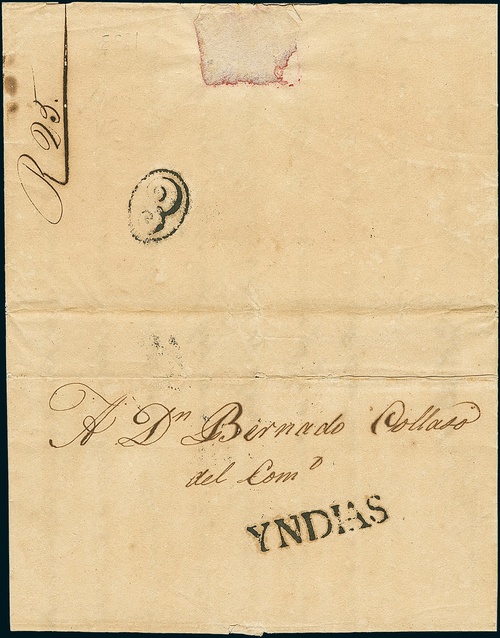 R 25.
3
A Dn Bernado Collaso
del Como
YNDIAS